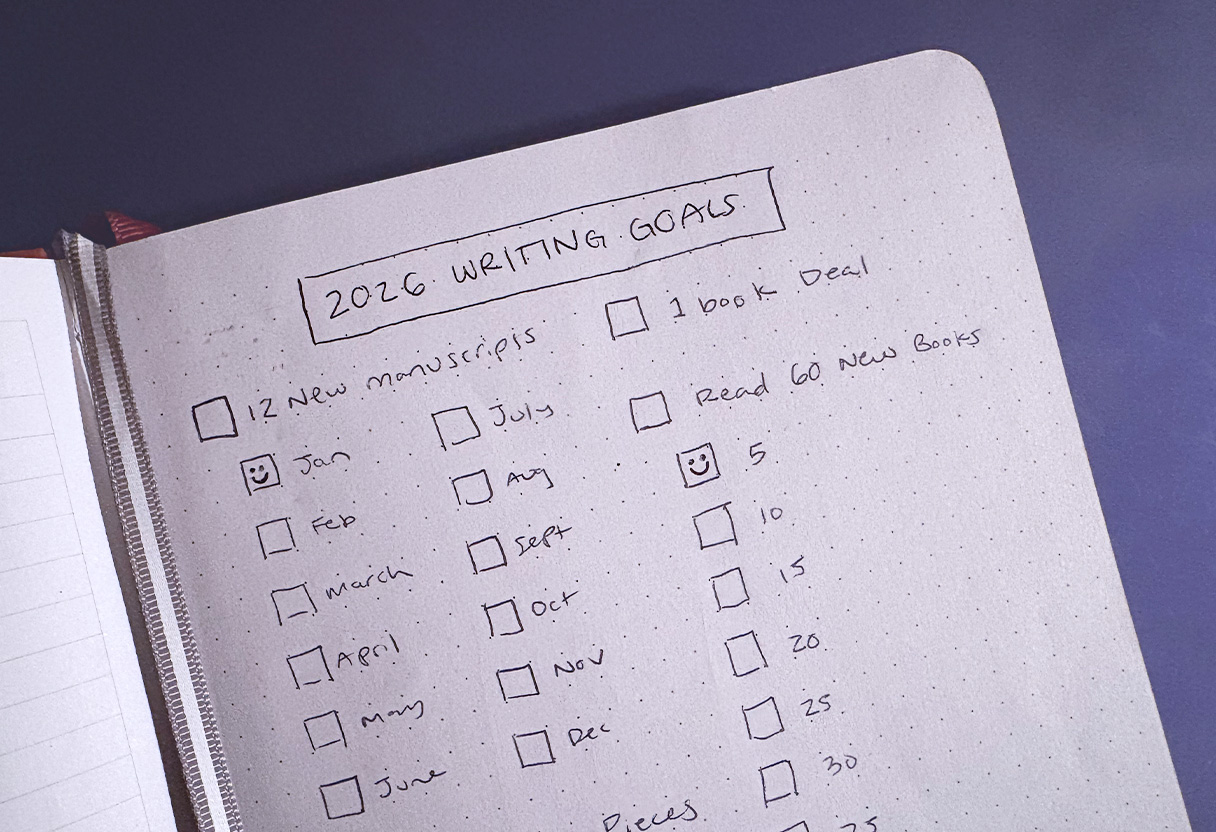 2026 WRITING GOALS
12 New manuscripts
Jan
Feb
March
April
May
June
July
Aug
Sept
Oct
Nov
Dec
1 book Deal
Read 60 New Books
5
10
15
20
25
30
Pieces